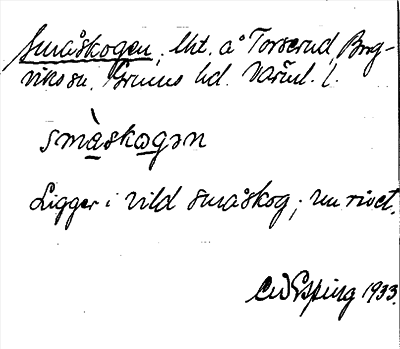 Småskogen, lht. å Torserud, Borg-
viks sn. Grums hd. Värml. l.
småskogən
Ligger i vild småskog; nu rivet.
1933.